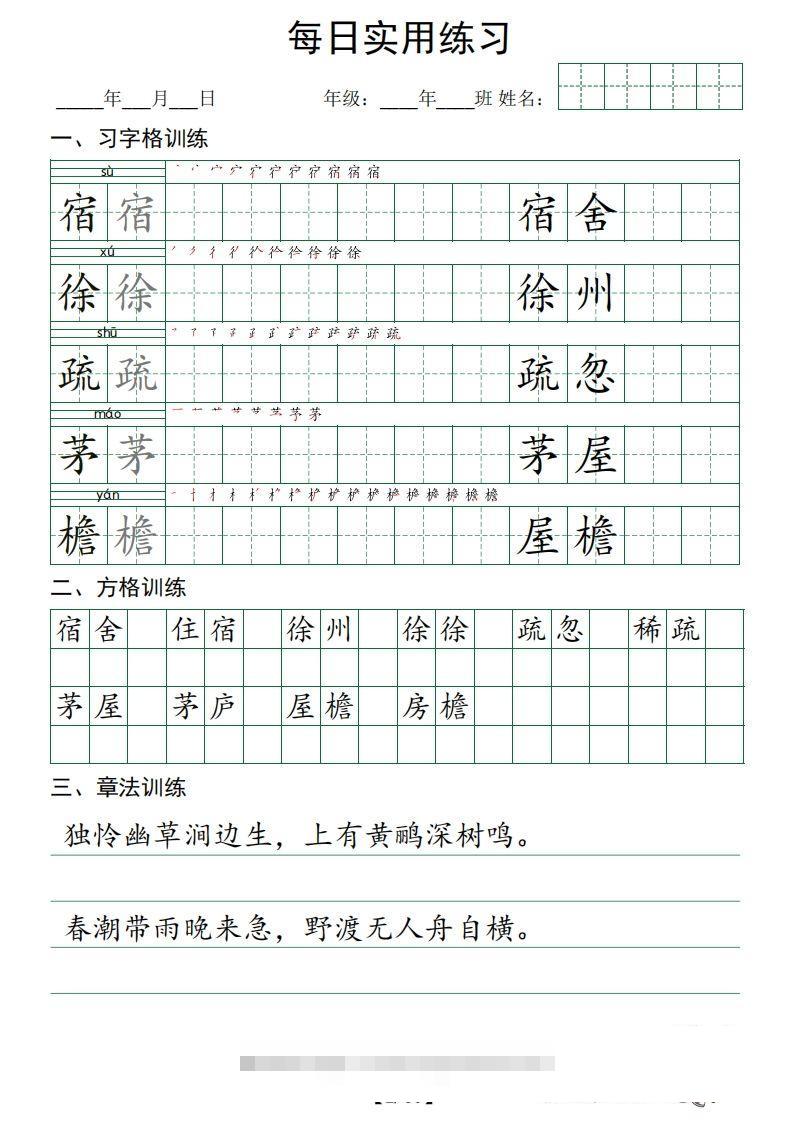 每日实用练习
_____年___月___日 年级：____年____班 姓名：
一、习字格训练
sù
宿 宿 宿 舍
xú
徐 徐 徐 州
shū
疏 疏 疏 忽
máo
茅 茅 茅 屋
yán
檐 檐 屋 檐
二、方格训练
宿 舍 住 宿 徐 州 徐 徐 疏 忽 稀 疏
茅 屋 茅 庐 屋 檐 房 檐
三、章法训练
独怜幽草涧边生，上有黄鹂深树鸣。
春潮带雨晚来急，野渡无人舟自横。